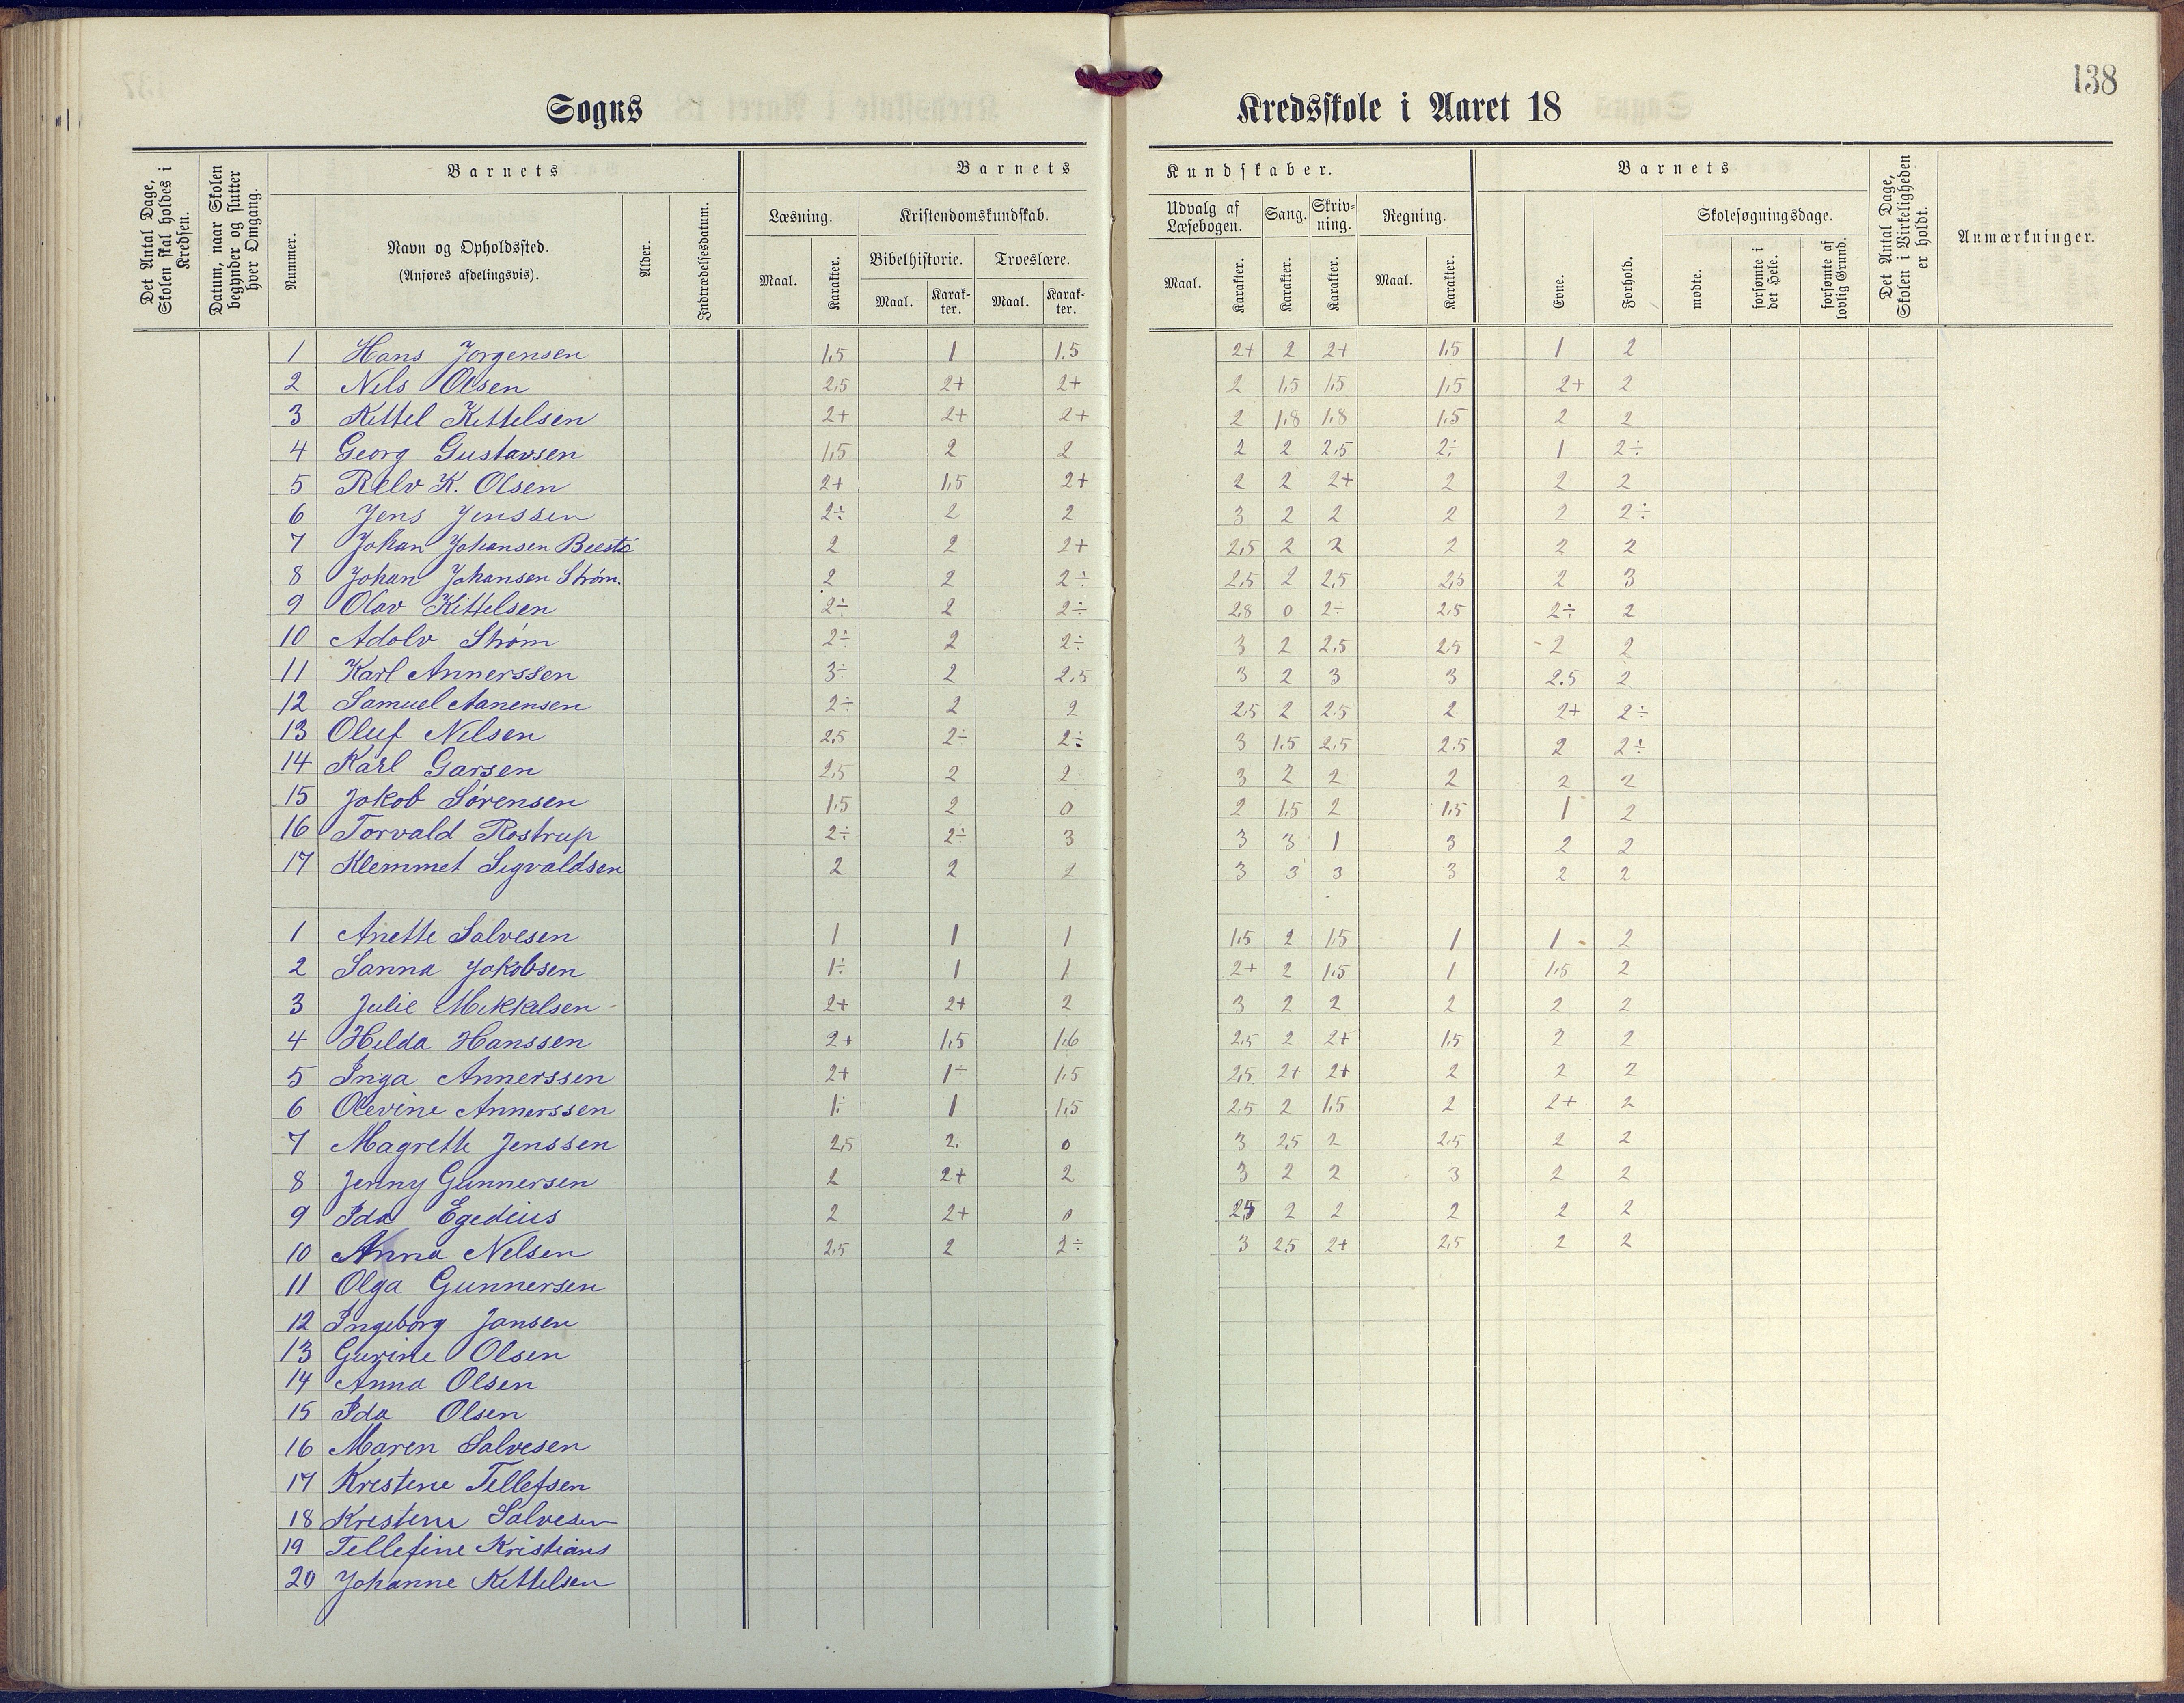 138
Sogns Kredsskole i Aaret 18
Det Antal Dage, Skolen skal holdes i Kredsen.
Datum, naar Skolen begynder og slutter hver Omgang.
Barnets
Nummer.
Navn og Opholdssted.
(Anføres afdelingsvis).
Alder.
Indtrædelsesdatum.
Barnets Kundskaber.
Læsning.
Maal. Karakter.
Kristendomskundskab.
Bibelhistorie. Troeslære.
Maal. Karakter. Maal. Karakter.
Udvalg af Læsebogen. Sang. Skrivning. Regning.
Maal. Karakter. Karakter. Karakter. Maal. Karakter.
Barnets
Evne. Forhold.
Skolesøgningsdage.
mødte. forsømte i det Hele. forsømte af lovlig Grund.
Det Antal Dage, Skolen i Virkeligheden er holdt.
Anmærkninger.
1 Hans Jorgensen 1,5 1 1,5 2+ 2 2+ 1,5 1 2
2 Nils Olsen 2,5 2+ 2+ 2 1,5 1,5 1,5 2+ 2
3 Kittel Kittelsen 2+ 2+ 2+ 2 1,8 1,8 1,5 2 2
4 Georg Gustavsen 1,5 2 2 2 2 2,5 2÷ 1 2÷
5 Relv K. Olsen 2+ 1,5 2+ 2 2 2+ 2 2 2
6 Jens Jenssen 2÷ 2 2 3 2 2 2 2 2÷
7 Johan Johansen 2 2 2+ 2,5 2 2 2 2 2
8 Johan Johansen Strøm. 2 2 2÷ 2,5 2 2,5 2,5 2 3
9 Olav Kittelsen 2÷ 2 2÷ 2,8 0 2÷ 2,5 2÷ 2
10 Adolv Strøm 2÷ 2 2÷ 3 2 2,5 2,5 2 2
11 Karl Annerssen 3÷ 2 2,5 3 2 3 3 2,5 2
12 Samuel Aanensen 2÷ 2 2 2,5 2 2,5 2 2+ 2÷
13 Oluf Nilsen 2,5 2÷ 2÷ 3 1,5 2,5 2,5 2 2÷
14 Karl Garsen 2,5 2 2 3 2 2 2 2 2
15 Jokob Sørensen 1,5 2 0 2 1,5 2 1,5 1 2
16 Torvald Rostrup 2÷ 2÷ 3 3 3 1 3 2 2
17 Klemmet Sigvaldsen 2 2 2 3 3 3 3 2 2
1 Anette Salvesen 1 1 1 1,5 2 1,5 1 1 2
2 Sanna Jakobsen 1÷ 1 1 2+ 2 1,5 1 1,5 2
3 Julie Mikkelsen 2+ 2+ 2 3 2 2 2 2 2
4 Hilda Hanssen 2+ 1,5 1,6 2,5 2 2+ 1,5 2 2
5 Inga Annerssen 2+ 1÷ 1,5 2,5 2+ 2+ 2 2 2
6 Olevine Annerssen 1÷ 1 1,5 2,5 2 1,5 2 2+ 2
7 Magrethe Jenssen 2,5 2. 0 3 2,5 2 2,5 2 2
8 Jenny Gunnersen 2 2+ 2 3 2 2 3 2 2
9 Ida Egedius 2 2+ 0 2,5 2 2 2 2 2
10 Anna Nelsen 2,5 2 2÷ 3 2,5 2+ 2,5 2 2
11 Olga Gunnersen
12 Ingeborg Jansen
13 Gurine Olsen
14 Anna Olsen
15 Ida Olsen
16 Maren Salvesen
17 Kristene Tellefsen
18 Kristene Salvesen
19 Tellefine Kristians
20 Johanne Kittelsen